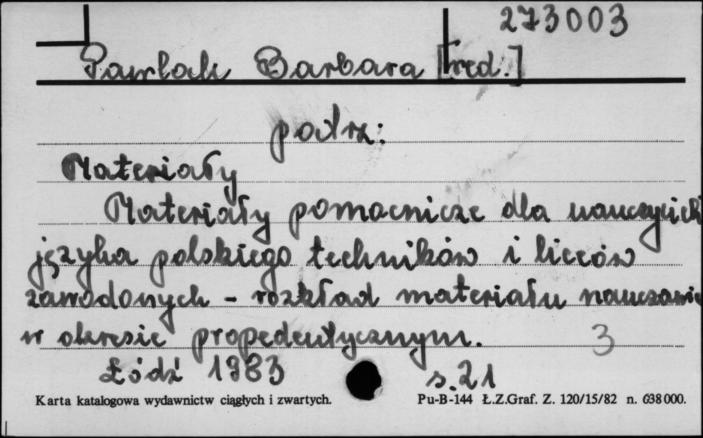 273003
Pawlak Barbara [red.]
patrz:
Materiały
Materiały pomocnicze dla nauczycieli
języka polskiego techników i liceów
zawodowych - rozkład materiału nauczania
w okresie propedeutycznym. 3
Łódź 1983 s. 21
Karta katalogowa wydawnictw ciągłych i zwartych. Pu-B-144 Ł.Z.Graf. Z. 120/15/82 n. 638 000.